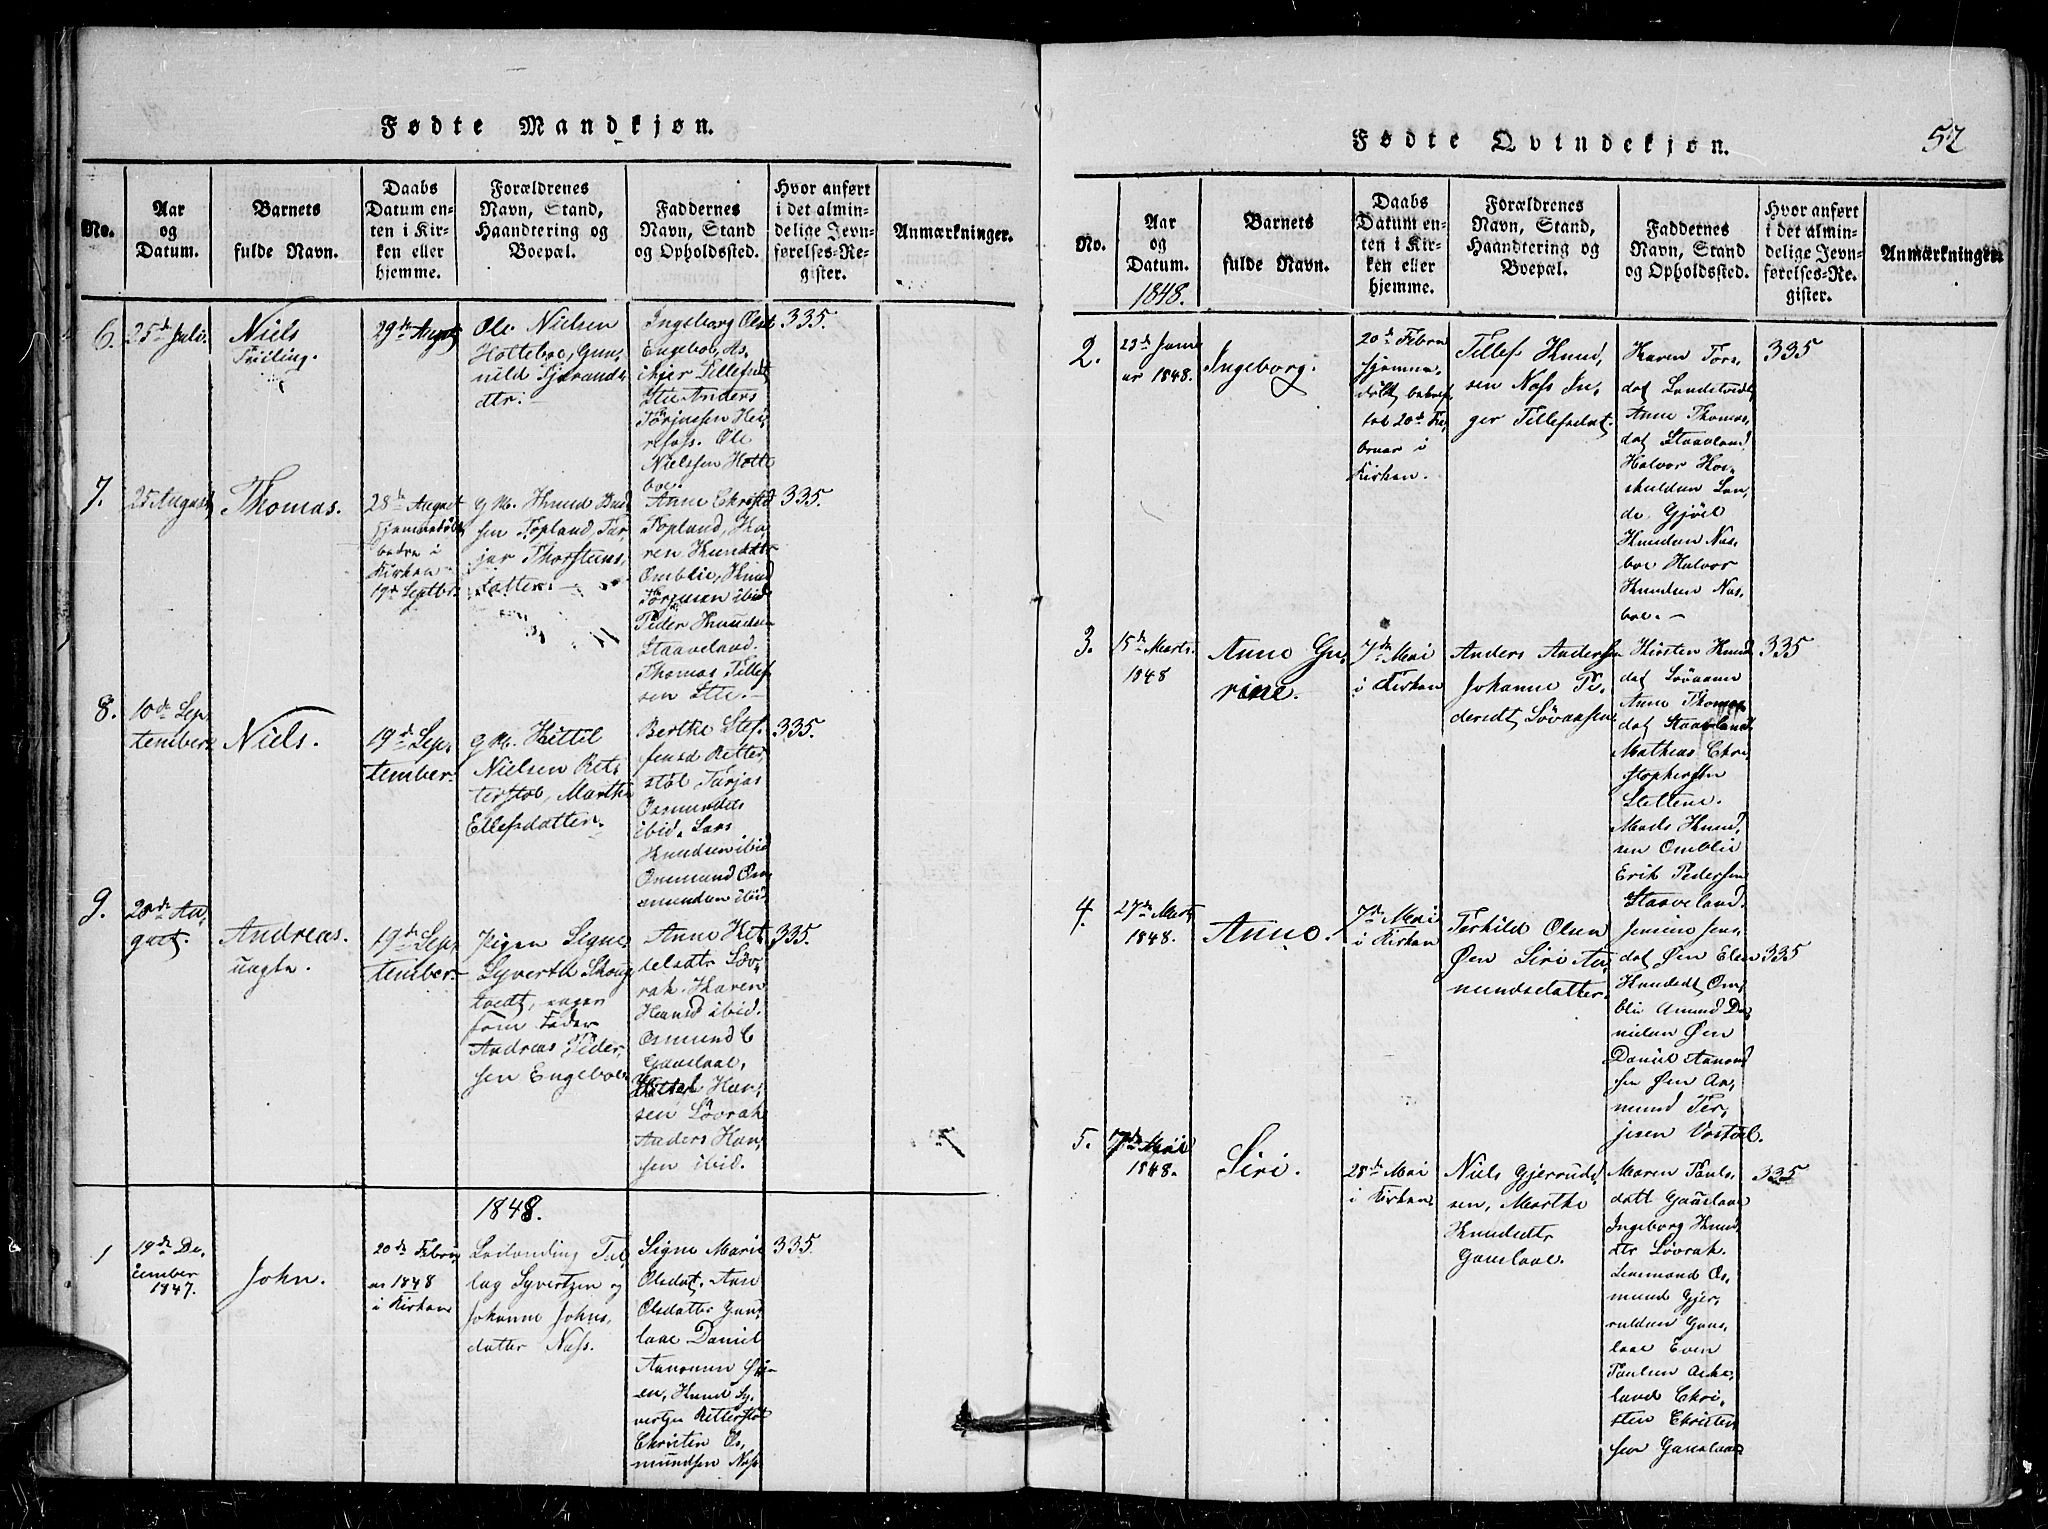 Fødte Mandkjøn.
No.
Aar
og
Datum.
Barnets
fulde Navn.
Daabs
Datum en-
ten i Kir-
ken eller
hjemme.
Forældrenes
Navn, Stand,
Haandtering og
Boepæl.
Faddernes
Navn, Stand
og Opholdssted.
Hvor anført
i det almin-
delige Jevn-
førelses-Re-
gister.
Anmærkninger.
6.
25de Juli.
Niels
Tvilling.
29de August
Ole Nielsen
Hotteboe, Gun,
nild Gjerands,
dtr.
Ingeborg Olsdt
Engeboe, As,
Tillefsdt
Lie Anders
Nielssen Hotte
boe.
335.
7.
25 August
Thomas.
28de August
hjemmedøbt
bedre i
Kirken
19de Septbr.
G. M. Knud
sen Topland, Tar,
jer Thorsteins,
datter.
Anne Christd
Topland, Ka
ren Knuddtr
Omblie, Knud
ibid
Peder Knudsen
Staaveland.
Thomas Tillef
sen Lie.
335.
8.
10de Sep,
tember
Niels.
19de Sep,
tember
G. M. Kittil
Nielsen Ret,
terstøl, Marthe
Ellefsdatter.
Berthe Stef
fensd Retter,
støl Tarjas
Osmundsdt
ibid. Lars
Knudsen ibid
Osmund Os,
mundsen ibid
335.
9.
20de Au,
gust.
Andreas.
uægte.
19de Sep,
tember
Pigen Signe
Syverth Skoug
tvedt, angen
som Fader
Andreas Peder,
sen Engeboe
Anne Ket,
telsdtr Løv,
rak. Karen
Hansd ibid.
Osmund C
Gauslaae,
Kittel Han,
sen Løvrak
Anders Han,
sen ibid.
335.
1848.
1
19de De,
cember
1847.
John.
20de Febru,
ar 1848
i Kirken
Leilending Tal,
lag Syvertsen og
Johanne Johns,
datter Næss.
Signe Marie
Olsdat. Ann
Olsdatter Gaus,
laae Daniel
Aanonsen Øi,
en, Knud Sy,
vertsen Retterstøl
Christen Os,
mundsen Næss
335.
Fødte Qvindekjøn.
52
No.
Aar
og
Datum.
1848.
Barnets
fulde Navn.
Daabs
Datum en-
ten i Kir-
ken eller
hjemme.
Forældrenes
Navn, Stand,
Haandtering og
Boepæl.
Faddernes
Navn, Stand
og Opholdssted.
Hvor anført
i det almin-
delige Jevn-
førelses-Re-
gister.
Anmærkninger.
2.
23de Janu
ar 1848.
Ingeborg.
20de Febru
hjemme,
døbt bekræf
tet 20de Fe,
bruar i
Kirken.
Tellef Knud,
sen Næss In,
ger Tellefsdat.
Karen Tors,
dat Landstvedt,
Anne Thomas,
dat Staaveland
Halvor Ho,
skulden Lan,
de, Gjøil
Knudsen Nas,
boe Halvor
Knudsen Nas,
boe.
335
3.
15de Marts.
1848
Anne Gu,
rine.
7de Mai
i Kirken
Anders Andersen
Johanne Pe,
dersdt Løvaasen
Kirsten Knud
dat Løvaasen
Anne Thomas
dat Staaveland
Mathias Chri,
stophersen
Slettene.
Mads Knud,
sen Omblie
Erik Pedersen
Staaveland.
335
4.
27de Marts
1848.
Anne.
7de Mai
i Kirken
Terkild Olsen
Øen Siri Aa,
mundsdatter.
Jensine Jens,
dat Øen Elen
Knudsdt Om,
blie Amund Da,
nielsen Øen
Daniel Aanond
sen Øen Aa,
mund Ter,
jesen Vastøl.
335
5.
17de April
1848.
Siri.
28de Mai
i Kirken
Niels Gjeruld,
sen, Marthe
Knudsdt
Gauslaae.
Maren Pauls,
datt Gauslaae
Ingeborg Knud
dtr Løvrak.
Lensmand Os,
mund Gjer,
uldsen Gaus,
laae Even
Paulsen Aske,
land Chri,
sten Christen
sen Gauslaae
335